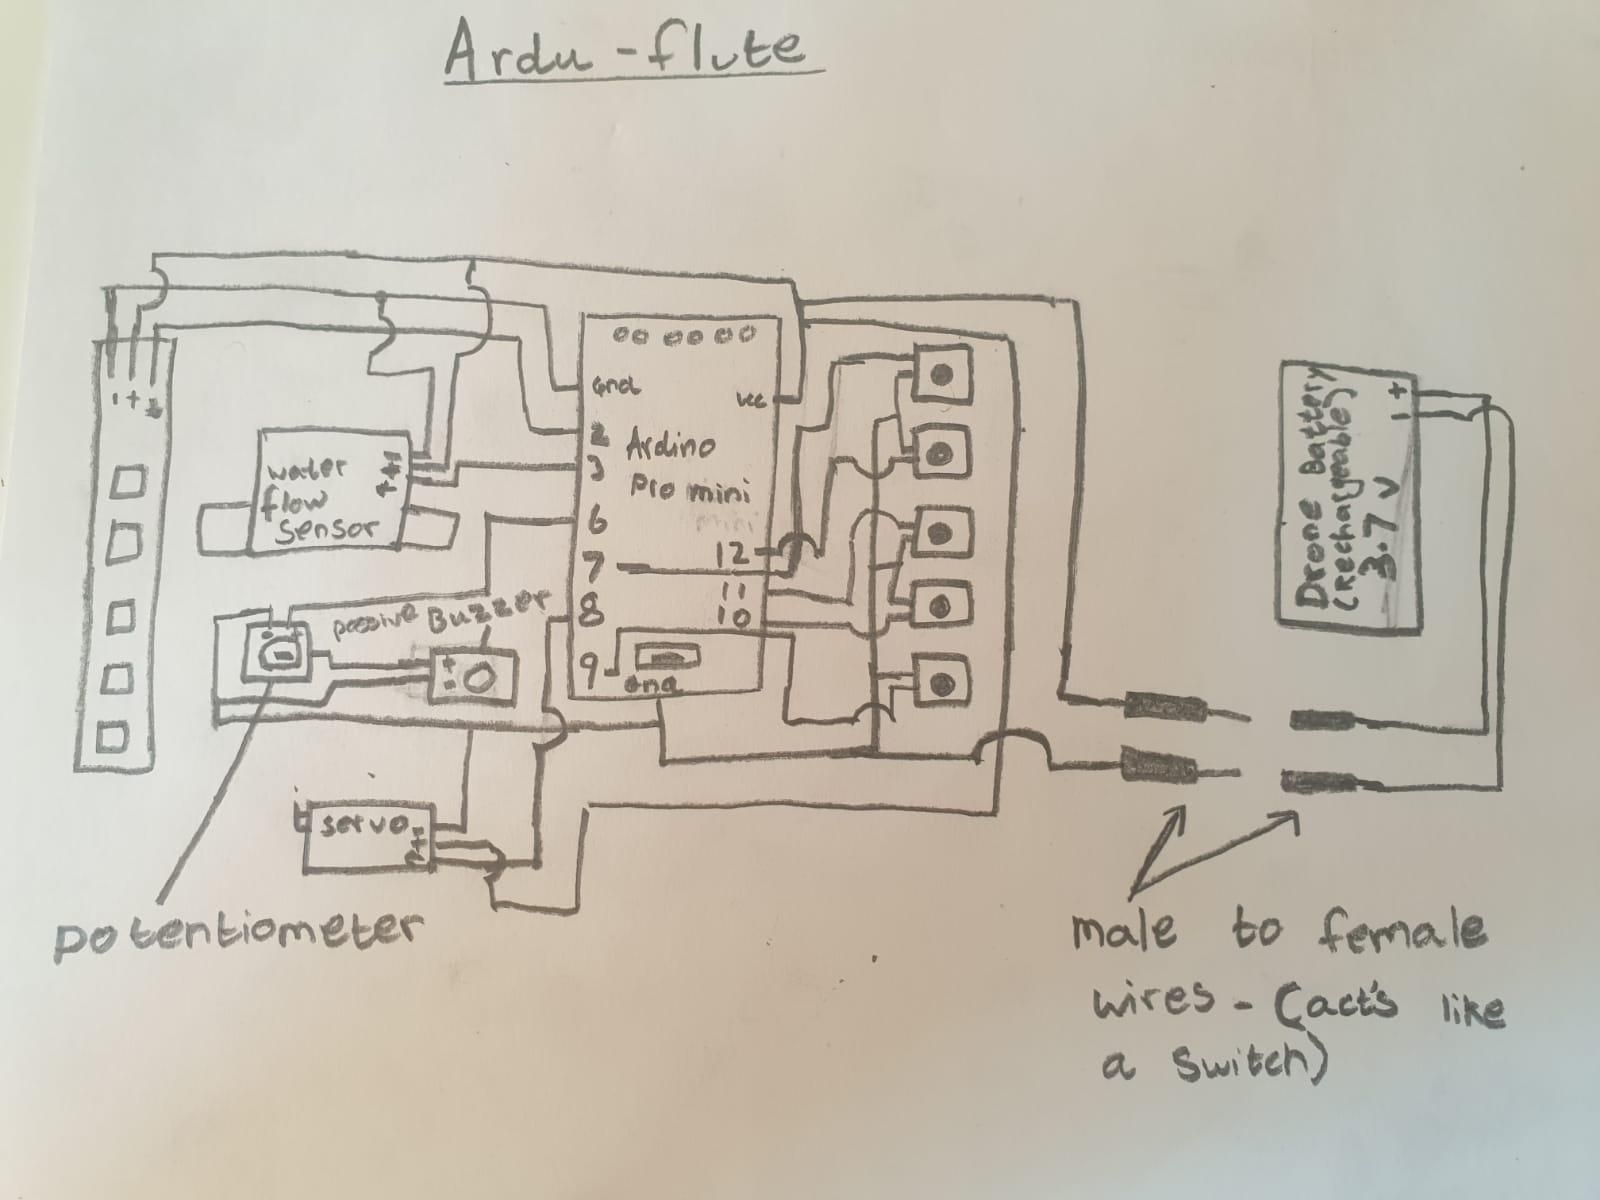 Ardu-flute
- +
Gnd
Vcc
2
3
6
7
8
9
12
11
10
Ardino
Pro mini
mini
Gnd
water
flow
sensor
passive Buzzer
+
-
- +
servo
potentiometer
Drone Battery
(Rechargeable)
3.7 V
+
-
male to female
wires - (act's like
a switch)